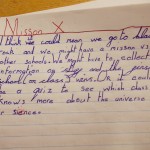 Misson X
I think we could mean we go to
rank and we might have a misson vs
other schools. We might have to collect
information on and the prime
school = class 3 wins. Or, it could
be a quiz to see which class
knows more about the universe
or sience.